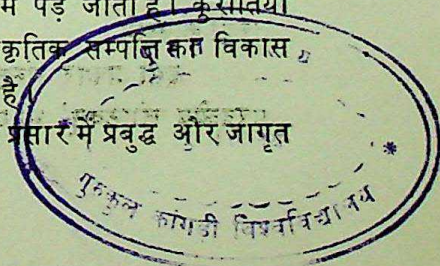 में पड़ जाता है। कुरीतियों
कृतिक सम्पत्ति का विकास
है।
प्रसार में प्रबुद्ध और जागृत
गुरुकुल कांगड़ी विश्वविद्यालय *